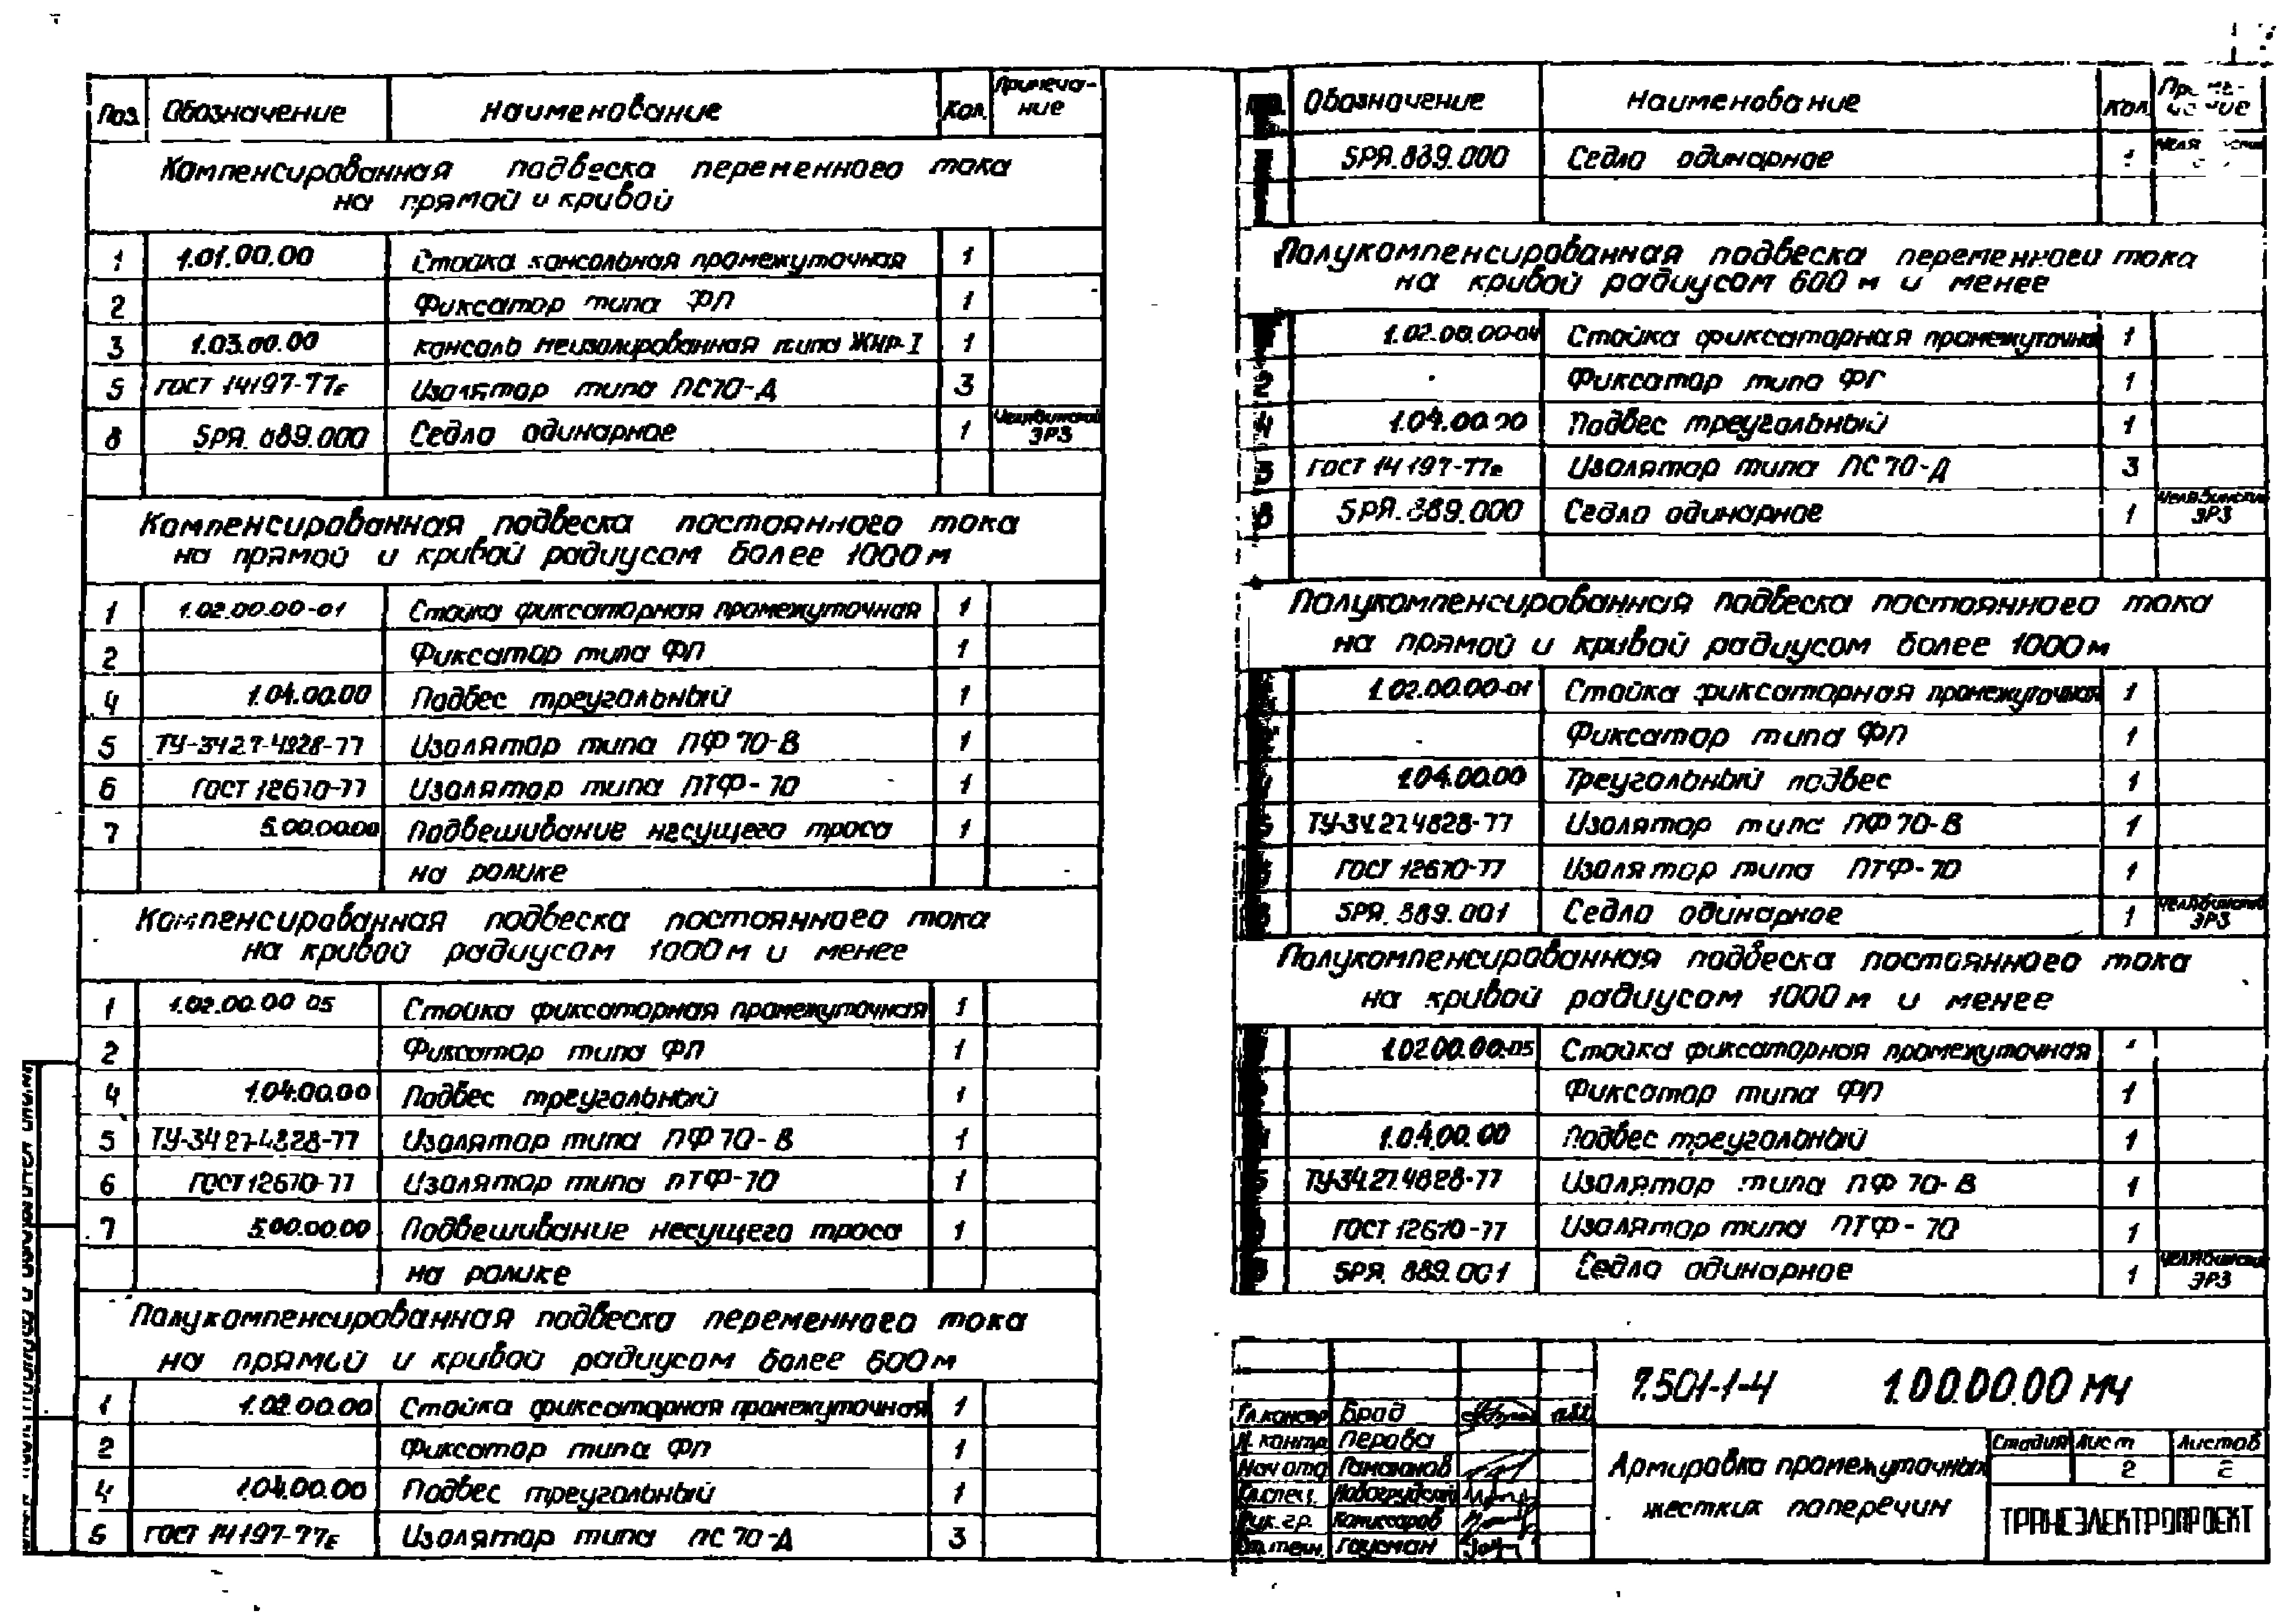 Поз. Обозначение Наименование Кол. Примеча-
ние
Компенсированная подвеска переменного тока
на прямой и кривой
1 1.01.00.00 Стойка консольная промежуточная 1
2 Фиксатор типа ФП 1
3 1.03.00.00 Консоль неизолированная типа ЖНР-I 1
5 ГОСТ 14197-77Е Изолятор типа ПС70-Д 3
8 5РЯ.889.000 Седло одинарное 1 Челябинский
ЭРЗ
Компенсированная подвеска постоянного тока
на прямой и кривой радиусом более 1000 м
1 1.02.00.00-01 Стойка фиксаторная промежуточная 1
2 Фиксатор типа ФП 1
4 1.04.00.00 Подвес треугольный 1
5 ТУ-34.27-4828-77 Изолятор типа ПФ 70-В 1
6 ГОСТ 12670-77 Изолятор типа ПТФ-70 1
7 5.00.00.00 Подвешивание несущего троса 1
на ролике
Компенсированная подвеска постоянного тока
на кривой радиусом 1000 м и менее
1 1.02.00.00 05 Стойка фиксаторная промежуточная 1
2 Фиксатор типа ФП 1
4 1.04.00.00 Подвес треугольный 1
5 ТУ-34 27-4828-77 Изолятор типа ПФ 70-В 1
6 ГОСТ 12670-77 Изолятор типа ПТФ-70 1
7 5.00.00.00 Подвешивание несущего троса 1
на ролике
Полукомпенсированная подвеска переменного тока
на прямой и кривой радиусом более 600 м
1 1.02.00.00 Стойка фиксаторная промежуточная 1
2 Фиксатор типа ФП 1
4 1.04.00.00 Подвес треугольный 1
5 ГОСТ 14197-77Е Изолятор типа ПС 70-Д 3
Обозначение Наименование Кол.
5РЯ.889.000 Седло одинарное 1
Полукомпенсированная подвеска переменного тока
на кривой радиусом 600 м и менее
1.02.00.00-04 Стойка фиксаторная промежуточная 1
2 Фиксатор типа ФГ 1
4 1.04.00.00 Подвес треугольный 1
5 ГОСТ 14197-77Е Изолятор типа ПС 70-Д 3
8 5РЯ.889.000 Седло одинарное 1 Челябинский
ЭРЗ
Полукомпенсированная подвеска постоянного тока
на прямой и кривой радиусом более 1000 м
1.02.00.00-01 Стойка фиксаторная промежуточная 1
Фиксатор типа ФП 1
1.04.00.00 Треугольный подвес 1
5 ТУ-34.27.4828-77 Изолятор типа ПФ 70-В 1
ГОСТ 12670-77 Изолятор типа ПТФ-70 1
5РЯ.889.001 Седло одинарное 1 Челябинский
ЭРЗ
Полукомпенсированная подвеска постоянного тока
на кривой радиусом 1000 м и менее
1.02.00.00-05 Стойка фиксаторная промежуточная
Фиксатор типа ФП 1
1.04.00.00 Подвес треугольный 1
5 ТУ-34.27.4828-77 Изолятор типа ПФ 70-В 1
ГОСТ 12670-77 Изолятор типа ПТФ-70 1
5РЯ.889.001 Седло одинарное 1 Челябинский
ЭРЗ
7.501-1-4 1.00.00.00 МЧ
Гл.констр Брад
Н.контр Перова
Нач отд
Гл.спец. Новогрудский
Рук.гр. Комиссаров
Гаусман
Армировка промежуточных
жестких поперечин
Стадия Лист Листов
2 2
ТРАНСЭЛЕКТРОПРОЕКТ